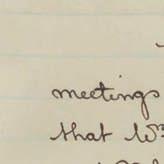 meetings
that Wm